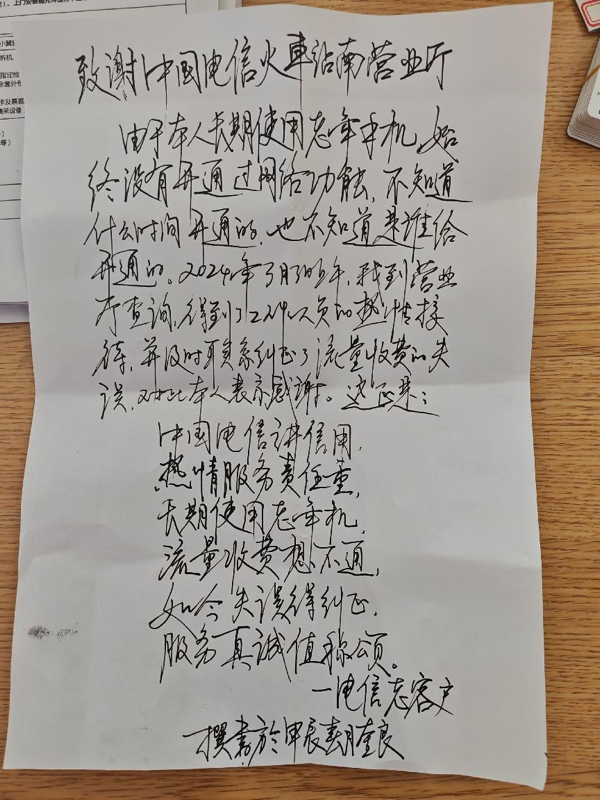 致谢中国电信火車站南营业厅
由于本人长期使用老年手机,始
终没有开通过网络功能,不知道
什么时间开通的,也不知道是谁给
开通的。2024年3月3日上午,我到营业
厅查询,得到了工作人员的热情接
待,并及时联系纠正了流量收费的失
误,对此本人表示感谢。这正是:
中国电信讲信用,
热情服务责任重,
长期使用老年机,
流量收费想不通,
如今失误得纠正,
服务真诚值称颂。
一电信老客户
撰書於甲辰春月奎良